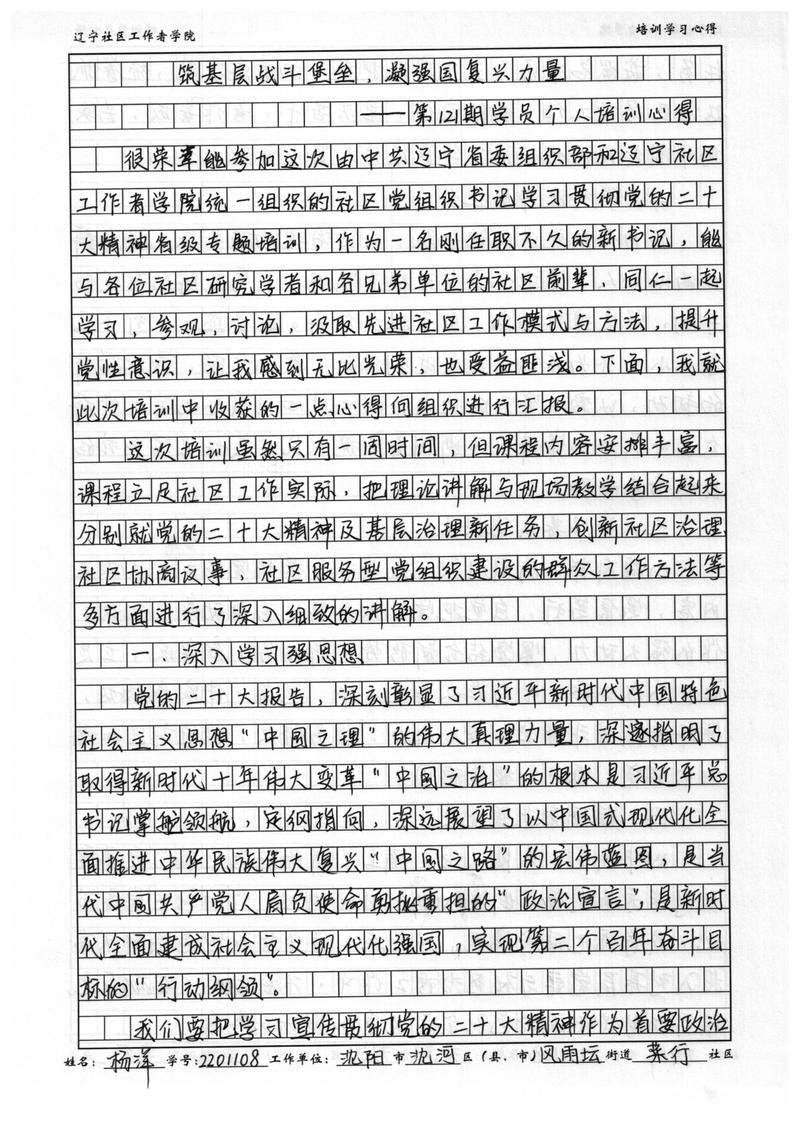 辽宁社区工作者学院 培训学习心得
筑基层战斗堡垒，凝强国复兴力量
——第121期学员个人培训心得
很荣幸能参加这次由中共辽宁省委组织部和辽宁社区
工作者学院统一组织的社区党组织书记学习贯彻党的二十
大精神省级专题培训，作为一名刚任职不久的新书记，能
与各位社区研究学者和各兄弟单位的社区前辈、同仁一起
学习，参观，讨论，汲取先进社区工作模式与方法，提升
党性意识，让我感到无比光荣，也受益匪浅。下面，我就
此次培训中收获的一点心得向组织进行汇报。
这次培训虽然只有一周时间，但课程内容安排丰富，
课程立足社区工作实际，把理论讲解与现场教学结合起来
分别就党的二十大精神及基层治理新任务，创新社区治理
社区协商议事，社区服务型党组织建设的群众工作方法等
多方面进行了深入细致的讲解。
一.深入学习强思想
党的二十大报告，深刻彰显了习近平新时代中国特色
社会主义思想“中国之理”的伟大真理力量，深邃指明了
取得新时代十年伟大变革“中国之治”的根本是习近平总
书记掌舵领航，定纲指向，深远展望了以中国式现代化全
面推进中华民族伟大复兴“中国之路”的宏伟蓝图，是当
代中国共产党人肩负使命勇挑重担的“政治宣言”，是新时
代全面建成社会主义现代化强国，实现第二个百年奋斗目
标的“行动纲领”。
我们要把学习宣传贯彻党的二十大精神作为首要政治
姓名：杨洋 学号：2201108 工作单位：沈阳市沈河区（县、市）风雨坛街道 菜行 社区